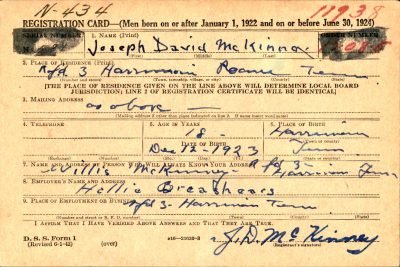 N-434
11938
REGISTRATION CARD—(Men born on or after January 1, 1922 and on or before June 30, 1924)
SERIAL NUMBER
1. NAME (Print)
ORDER NUMBER
Joseph David McKinney
(First) (Middle) (Last)
2. PLACE OF RESIDENCE (Print)
Rfd 3 Harriman Roane Tenn
(Number and street) (Town, township, village, or city) (County) (State)
[THE PLACE OF RESIDENCE GIVEN ON THE LINE ABOVE WILL DETERMINE LOCAL BOARD
JURISDICTION; LINE 2 OF REGISTRATION CERTIFICATE WILL BE IDENTICAL]
3. MAILING ADDRESS
as above
[Mailing address if other than place indicated on line 2. If same insert word same]
4. TELEPHONE
5. AGE IN YEARS
6. PLACE OF BIRTH
18
Harriman
DATE OF BIRTH
Dec 12 - 1923
Tenn
7. NAME AND ADDRESS OF PERSON WHO WILL ALWAYS KNOW YOUR ADDRESS
Willis McKinney Rfd 3 - Harriman Tenn
8. EMPLOYER'S NAME AND ADDRESS
Hollie Breashears
9. PLACE OF EMPLOYMENT OR BUSINESS
Rfd 3 - Harriman Tenn
(Number and street or R. F. D. number) (Town) (County) (State)
I AFFIRM THAT I HAVE VERIFIED ABOVE ANSWERS AND THAT THEY ARE TRUE.
D. S. S. Form 1
(Revised 6-1-42) (over)
J. D. McKinney
(Registrant's signature)